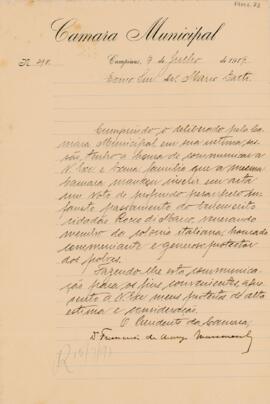 Camara Municipal
N. 298. Campinas, 9 de Julho de 1917
Exmo Snr. Mario Gatti
Cumprindo o deliberado pela Ca-
mara Municipal em sua ultima ses-
são, tenho a honra de communicar a
V. Exa e Exma familia que a mesma
Camara mandou inserir em acta
um voto de profundo pezar pelo in-
fausto passamento do
cidadão Rocco di Marco, venerando
membro da colonia italiana, honrado
commerciante e generoso protector
dos pobres.
Fazendo-lhe esta communica-
ção para os fins convenientes, apre-
sento a V. Exa meus protestos de alta
estima e consideração.
O Presidente da Camara,